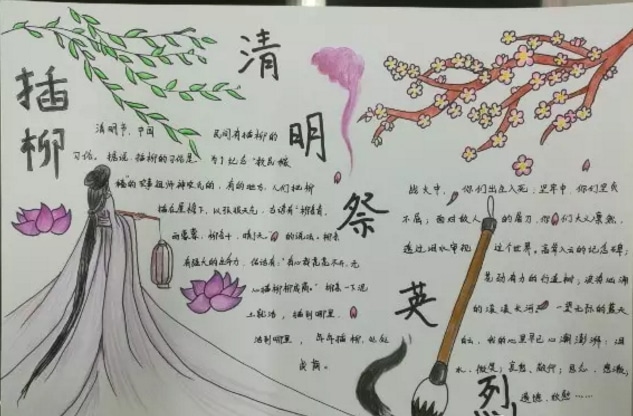 插柳
清明祭英烈
清明节，中国 民间有插柳的
习俗。据说，插柳的习俗是 为了纪念"教民稼
穑"的农事祖师神农氏的，有的地方，人们把柳
插在屋檐下，以预报天气，古谚有"柳条青，
雨蒙蒙；柳条干，晴了天"的说法。柳条
有强大的生命力，俗话说："有心栽花花不开，无
心插柳柳成荫。"柳条一下泥
土就活，插到哪里，
活到哪里，年年插柳，处处
成荫。
战火中，你们出生入死；坚牢中，你们坚贞
不屈；面对敌人的屠刀，你们大义凛然，
透过泪水审视这个世界。高耸入云的纪念碑；
苍劲有力的行道树；波涛汹涌
的滚滚长河。一望无际的蓝天
白云，我的心里早已心潮澎湃：泪
水，微笑；哀愁，敬仰；
遗憾，欣慰……